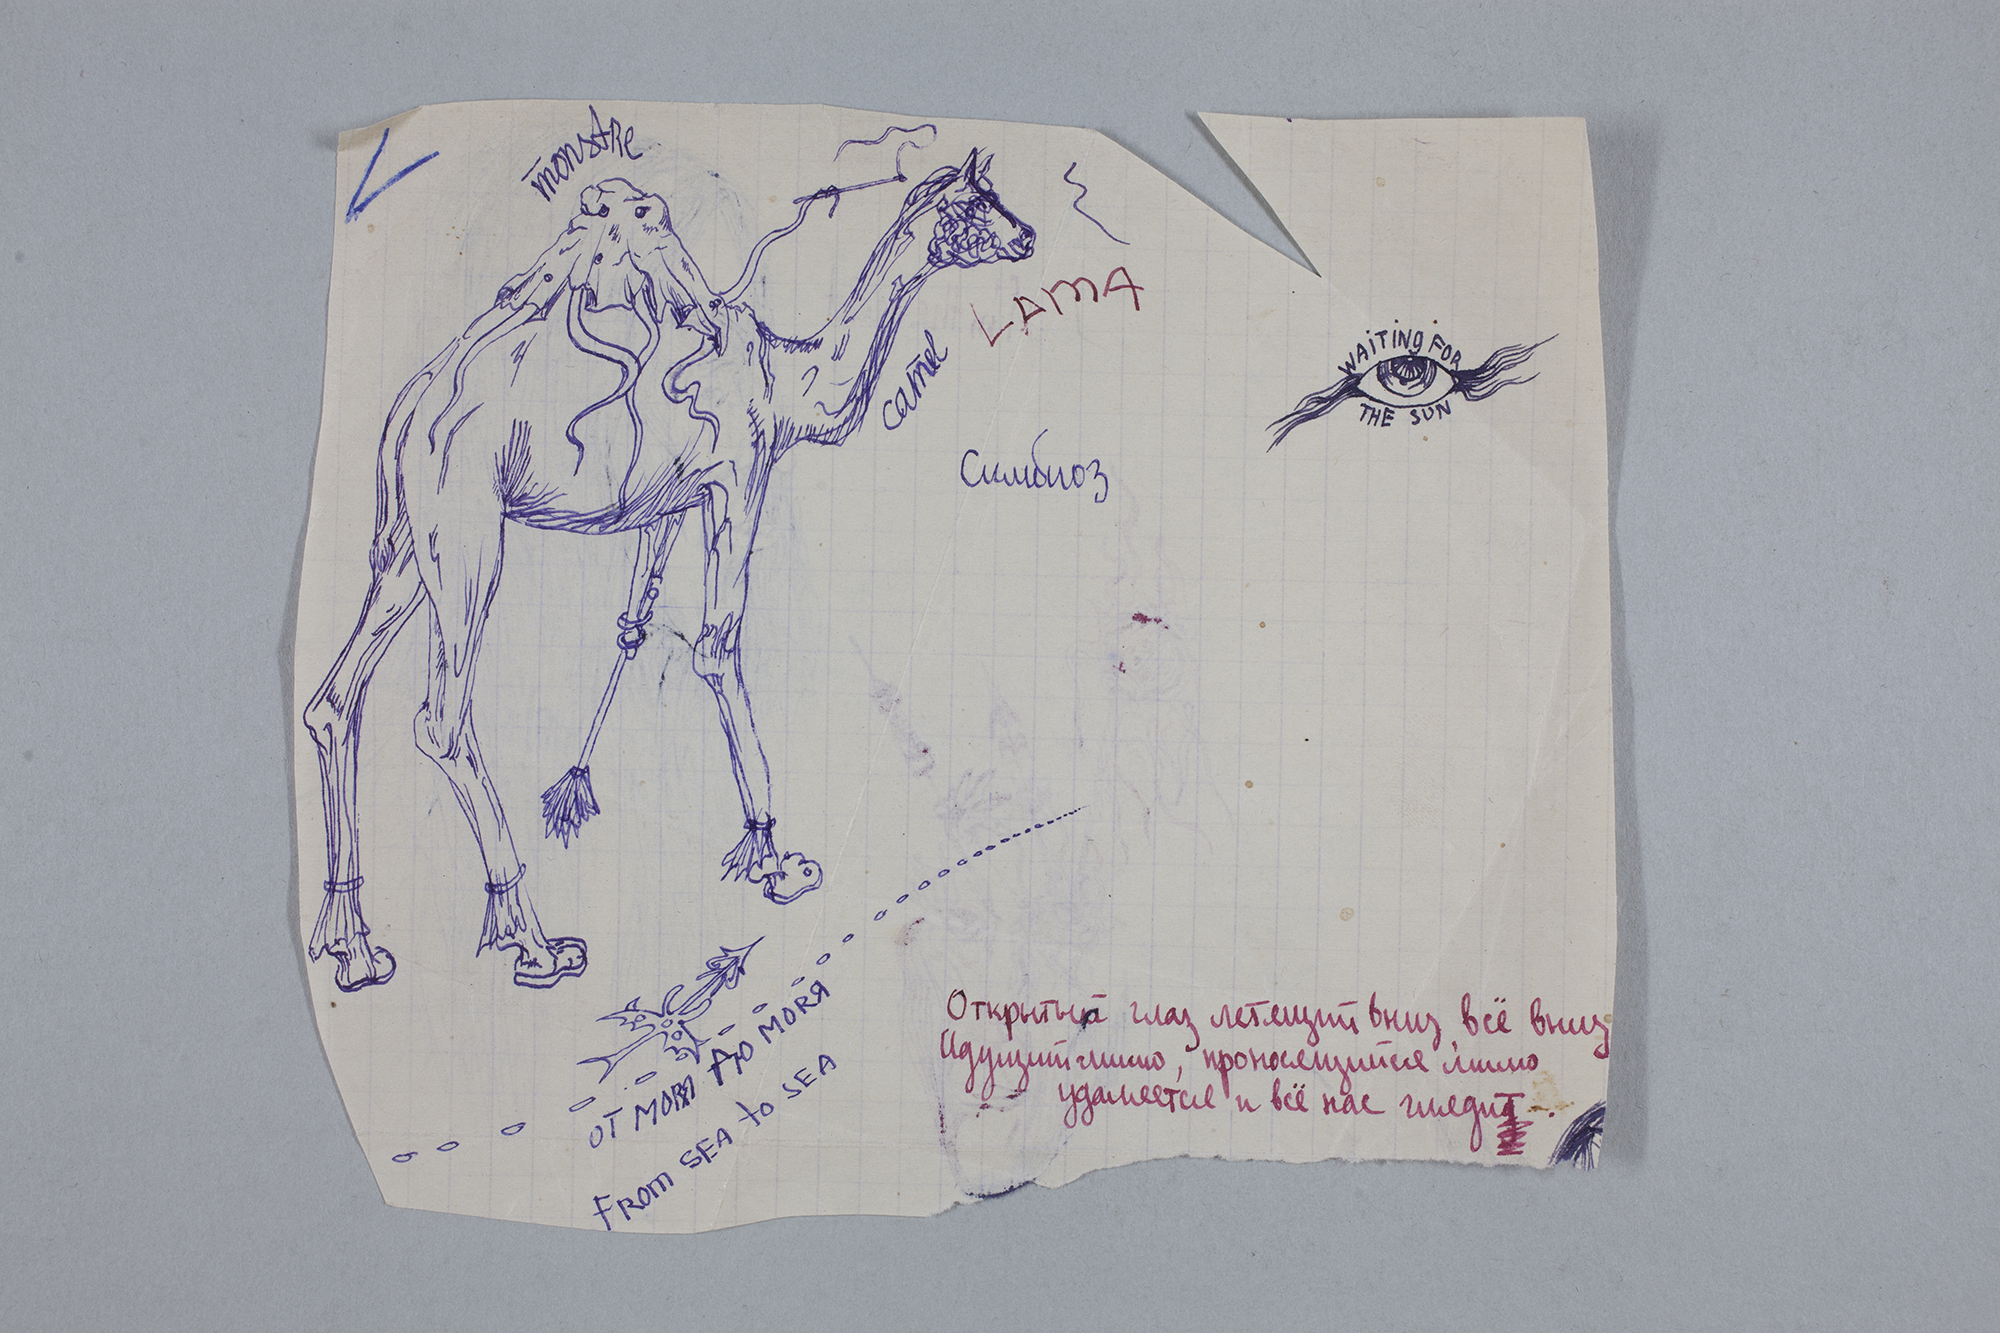 monstre
LAMA
camel
WAITING FOR
THE SUN
Симбиоз
ОТ МОРЯ ДО МОRЯ
FROM SEA to SEA
Открытый глаз летящий вниз всё вниз
Идущий мимо, проносящийся мимо
удаляется и всё нас глядит.